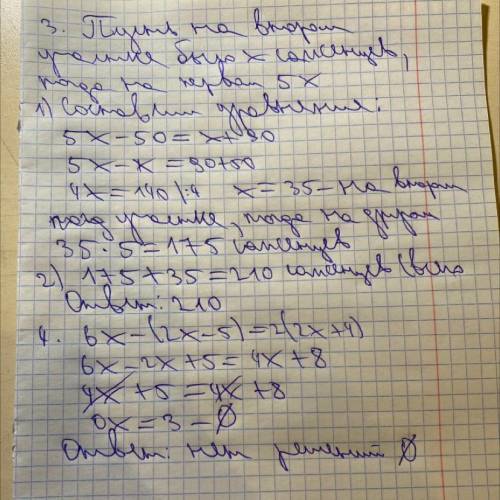 3. Пусть на втором
участке было x саженцев,
тогда на первом 5x
1) Составим уравнения:
5x-50=x+90
5x-x=90+50
4x=140 |:4 x=35- на втором
участке, тогда на другом
35·5=175 саженцев
2) 175+35=210 саженцев (всего
Ответ: 210
4. 6x-(2x-5)=2(2x+4)
6x-2x+5=4x+8
4x+5=4x+8
0x=3-∅
Ответ: нет решений ∅